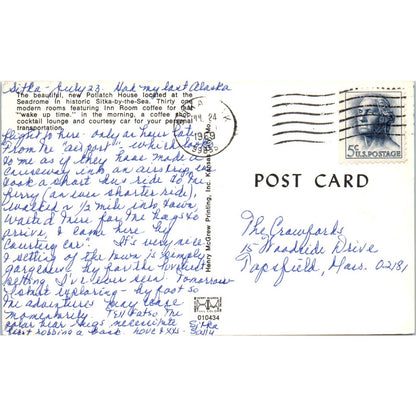 Sitka - July 23. Had my last Alaska
The beautiful, new Potlatch House located at the
Seadrome in historic Sitka-by-the-Sea. Thirty one
modern rooms featuring Inn Room coffee for that
"wake up time." in the morning, a coffee shop,
cocktail lounge and courtesy car for your personal
transportation.
flight to here - only an hour late
From the "airport" which looked
to me as if they have made a
causeway into an airstrip, can
took a short bus ride to the
ferry (an even shorter ride),
walked a 1/2 mile into town
waited there for the bags to
arrive, & came here by
"Courtesy car". It's very nice
& setting of the town is simply
gorgeous, by far the loveliest
setting I've ever seen. Tomorrow
I start exploring - by foot so
the adventures may cease
momentarily. Tell Fatso the
polar bear rugs necessitate
first robbing a bank. Love & XXs-
Sitka
1969
JUL 24
99835
5c U.S. POSTAGE
POST CARD
Henry McGrew Printing, Inc. Kansas City, Mo.
The Crawfords
15 Woodside Drive
Topsfield, Mass. 02181
HM
010434